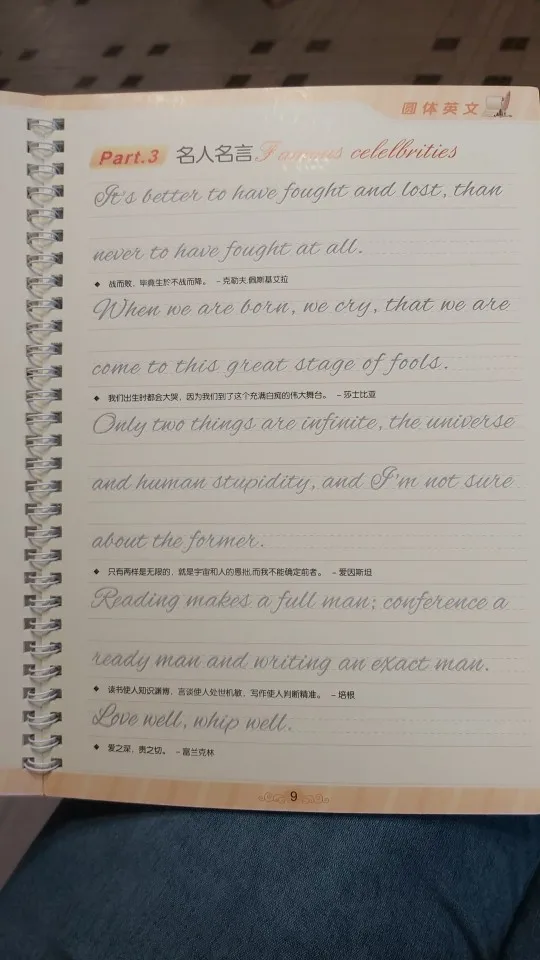 圆体英文
Part.3 名人名言 Famous celelbrities
It's better to have fought and lost, than
never to have fought at all.
◆ 战而败，毕竟生於不战而降。 -克勒夫.佩斯基艾拉
When we are born, we cry, that we are
come to this great stage of fools.
◆ 我们出生时都会大哭，因为我们到了这个充满白痴的伟大舞台。 -莎士比亚
Only two things are infinite, the universe
and human stupidity, and I'm not sure
about the former.
◆ 只有两样是无限的，就是宇宙和人的愚拙,而我不能确定前者。 -爱因斯坦
Reading makes a full man; conference a
ready man and writing an exact man.
◆ 读书使人知识渊博，言谈使人处世机敏，写作使人判断精准。 -培根
Love well, whip well.
◆ 爱之深，责之切。 -富兰克林
9